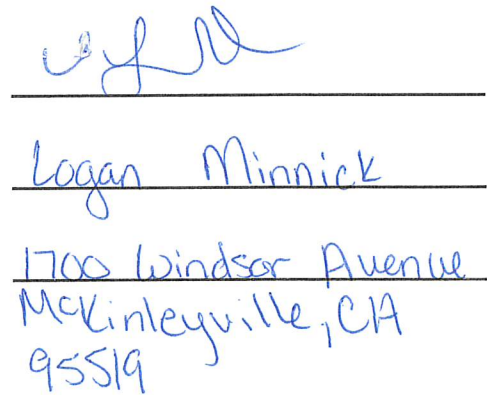 Logan Minnick
1700 Windsor Avenue
McKinleyville, CA
95519